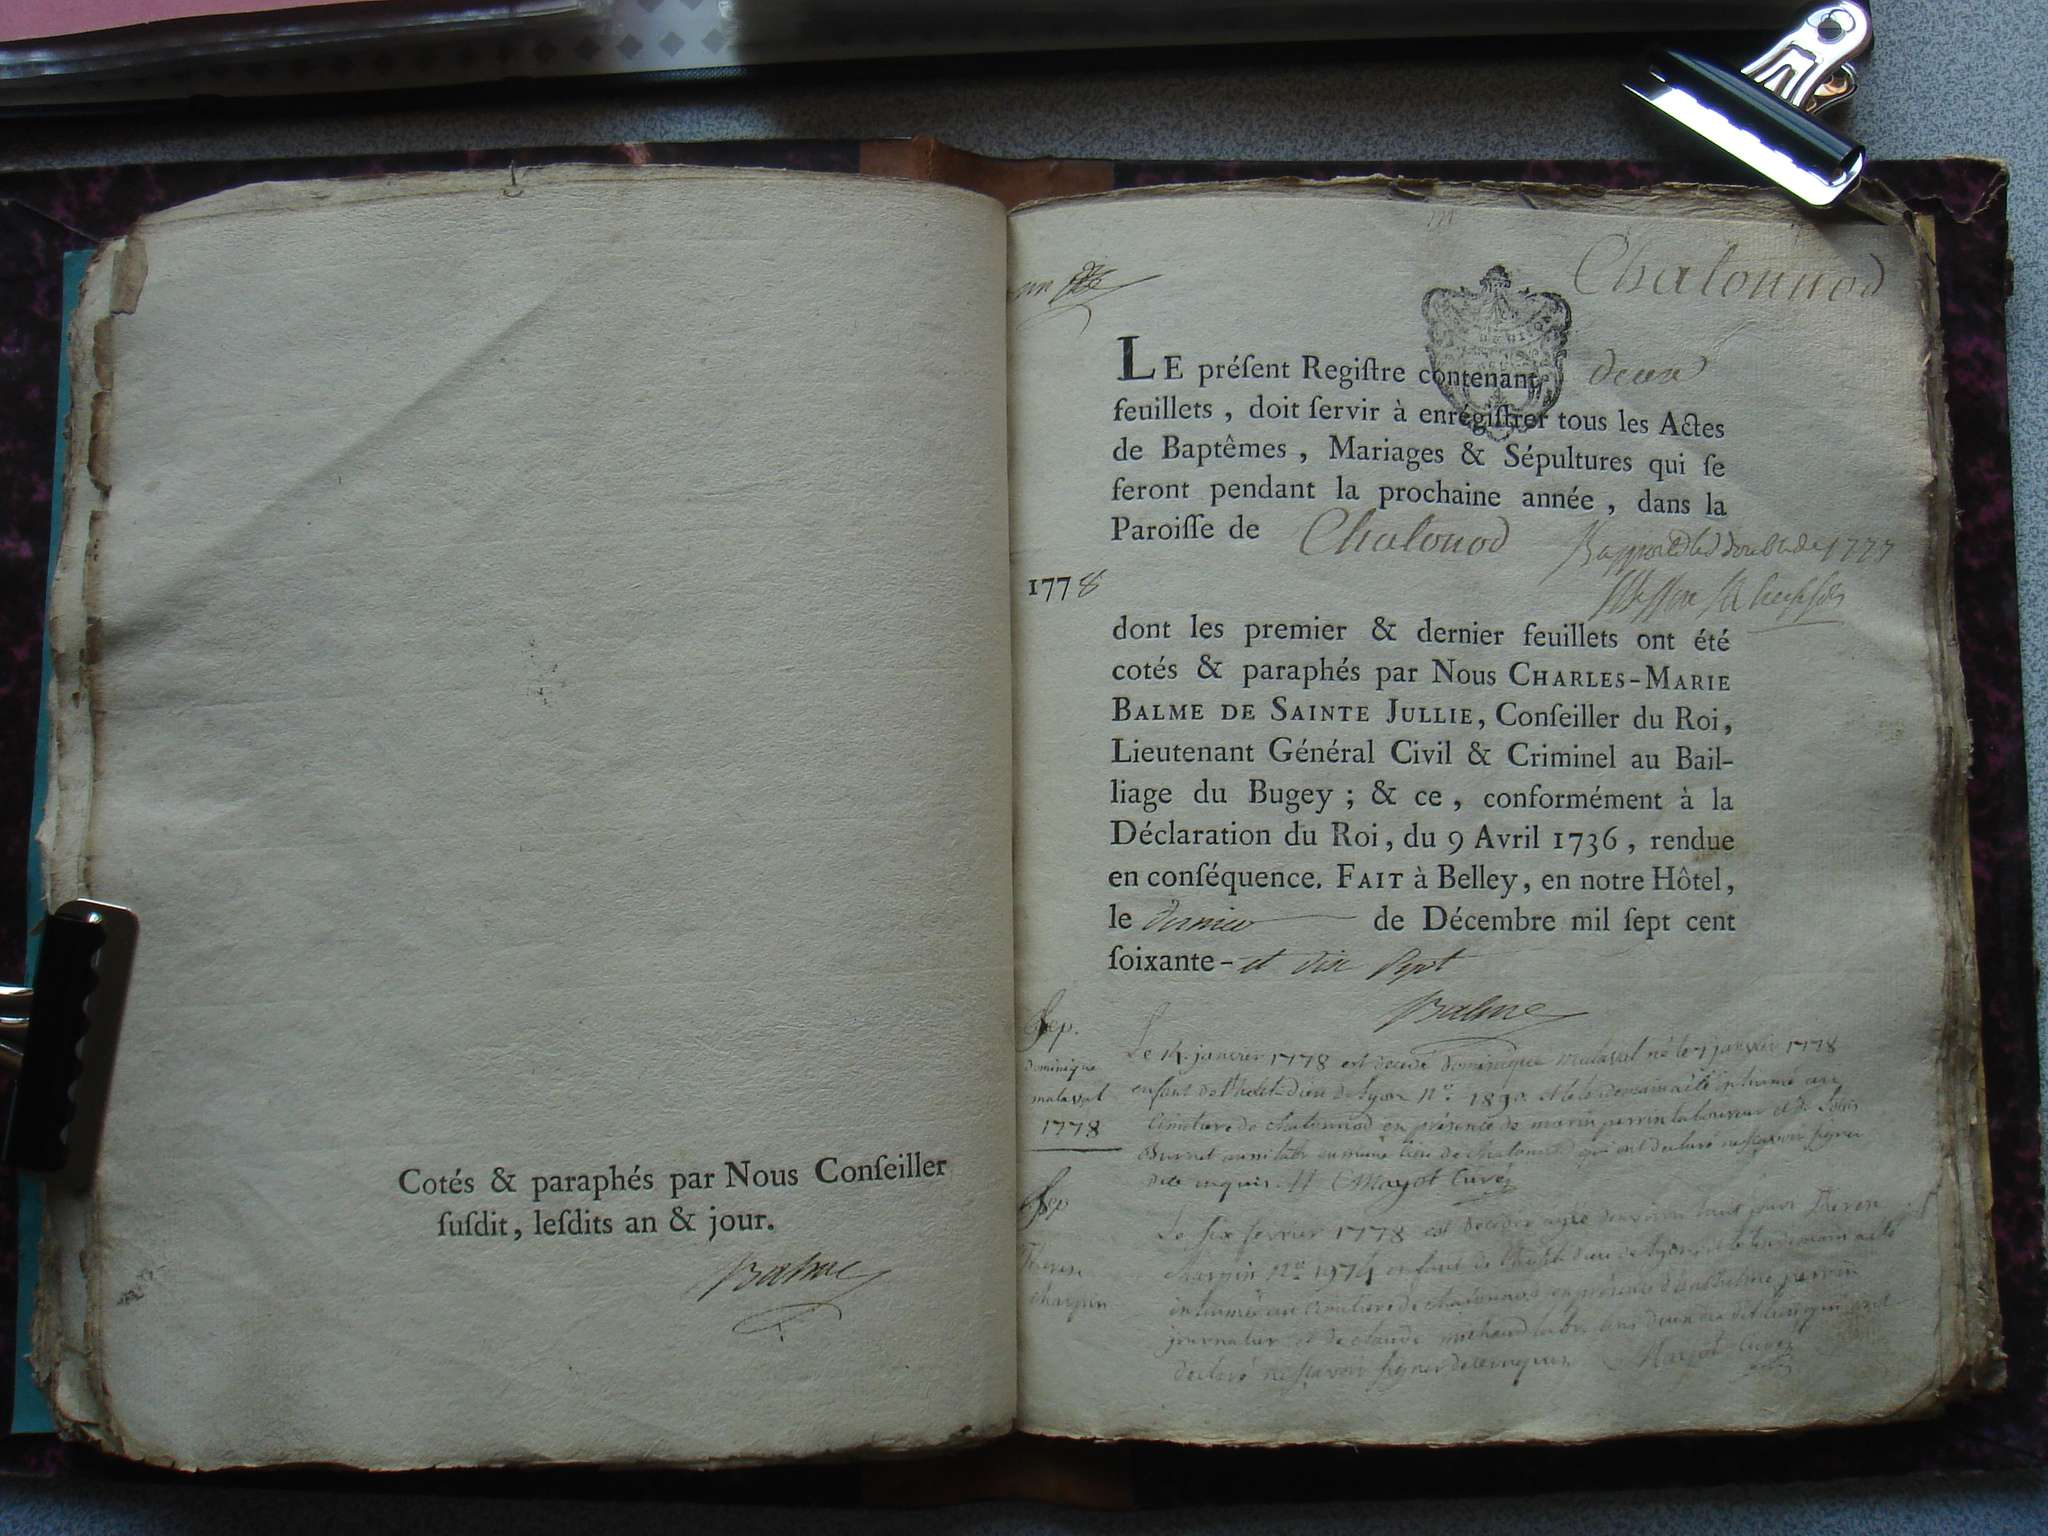 Cotés & paraphés par Nous Conſeiller
ſuſdit, leſdits an & jour.
Balme
Chatonnod
LE préſent Regiſtre contenant deux
feuillets, doit ſervir à enrégiſtrer tous les Actes
de Baptêmes, Mariages & Sépultures qui ſe
feront pendant la prochaine année, dans la
Paroiſſe de Chatonod
1778
dont les premier & dernier feuillets ont été
cotés & paraphés par Nous CHARLES-MARIE
BALME DE SAINTE JULLIE, Conſeiller du Roi,
Lieutenant Général Civil & Criminel au Bail-
liage du Bugey; & ce, conformément à la
Déclaration du Roi, du 9 Avril 1736, rendue
en conſéquence. FAIT à Belley, en notre Hôtel,
le dernier de Décembre mil ſept cent
ſoixante-et dix Sept
Balme
Sep.
dominique
malaval
1778
Le 14 janvier 1778 est decedé dominique malaval né le 7 janvier 1778
enfant de l'hotel-dieu de Lyon n° et le lendemain a été inhumé au
Cimetiere de chatonnod en présence de perrin laboureur et de Louis
Burnet lieu de chatonnod qui ont declaré ne sçavoir signer
de ce enquis. Mayot Curé
Sep
Therese
charpin
Le six fevrier 1778 est
charpin n° 1974 enfant de l'hotel-dieu de Lyon et le lendemain a été
inhumée au Cimetiere de chatonnod en présence d'anthelme perrin
journalier et de claude michaud qui ont
declaré ne sçavoir signer de ce enquis Mayot Curé